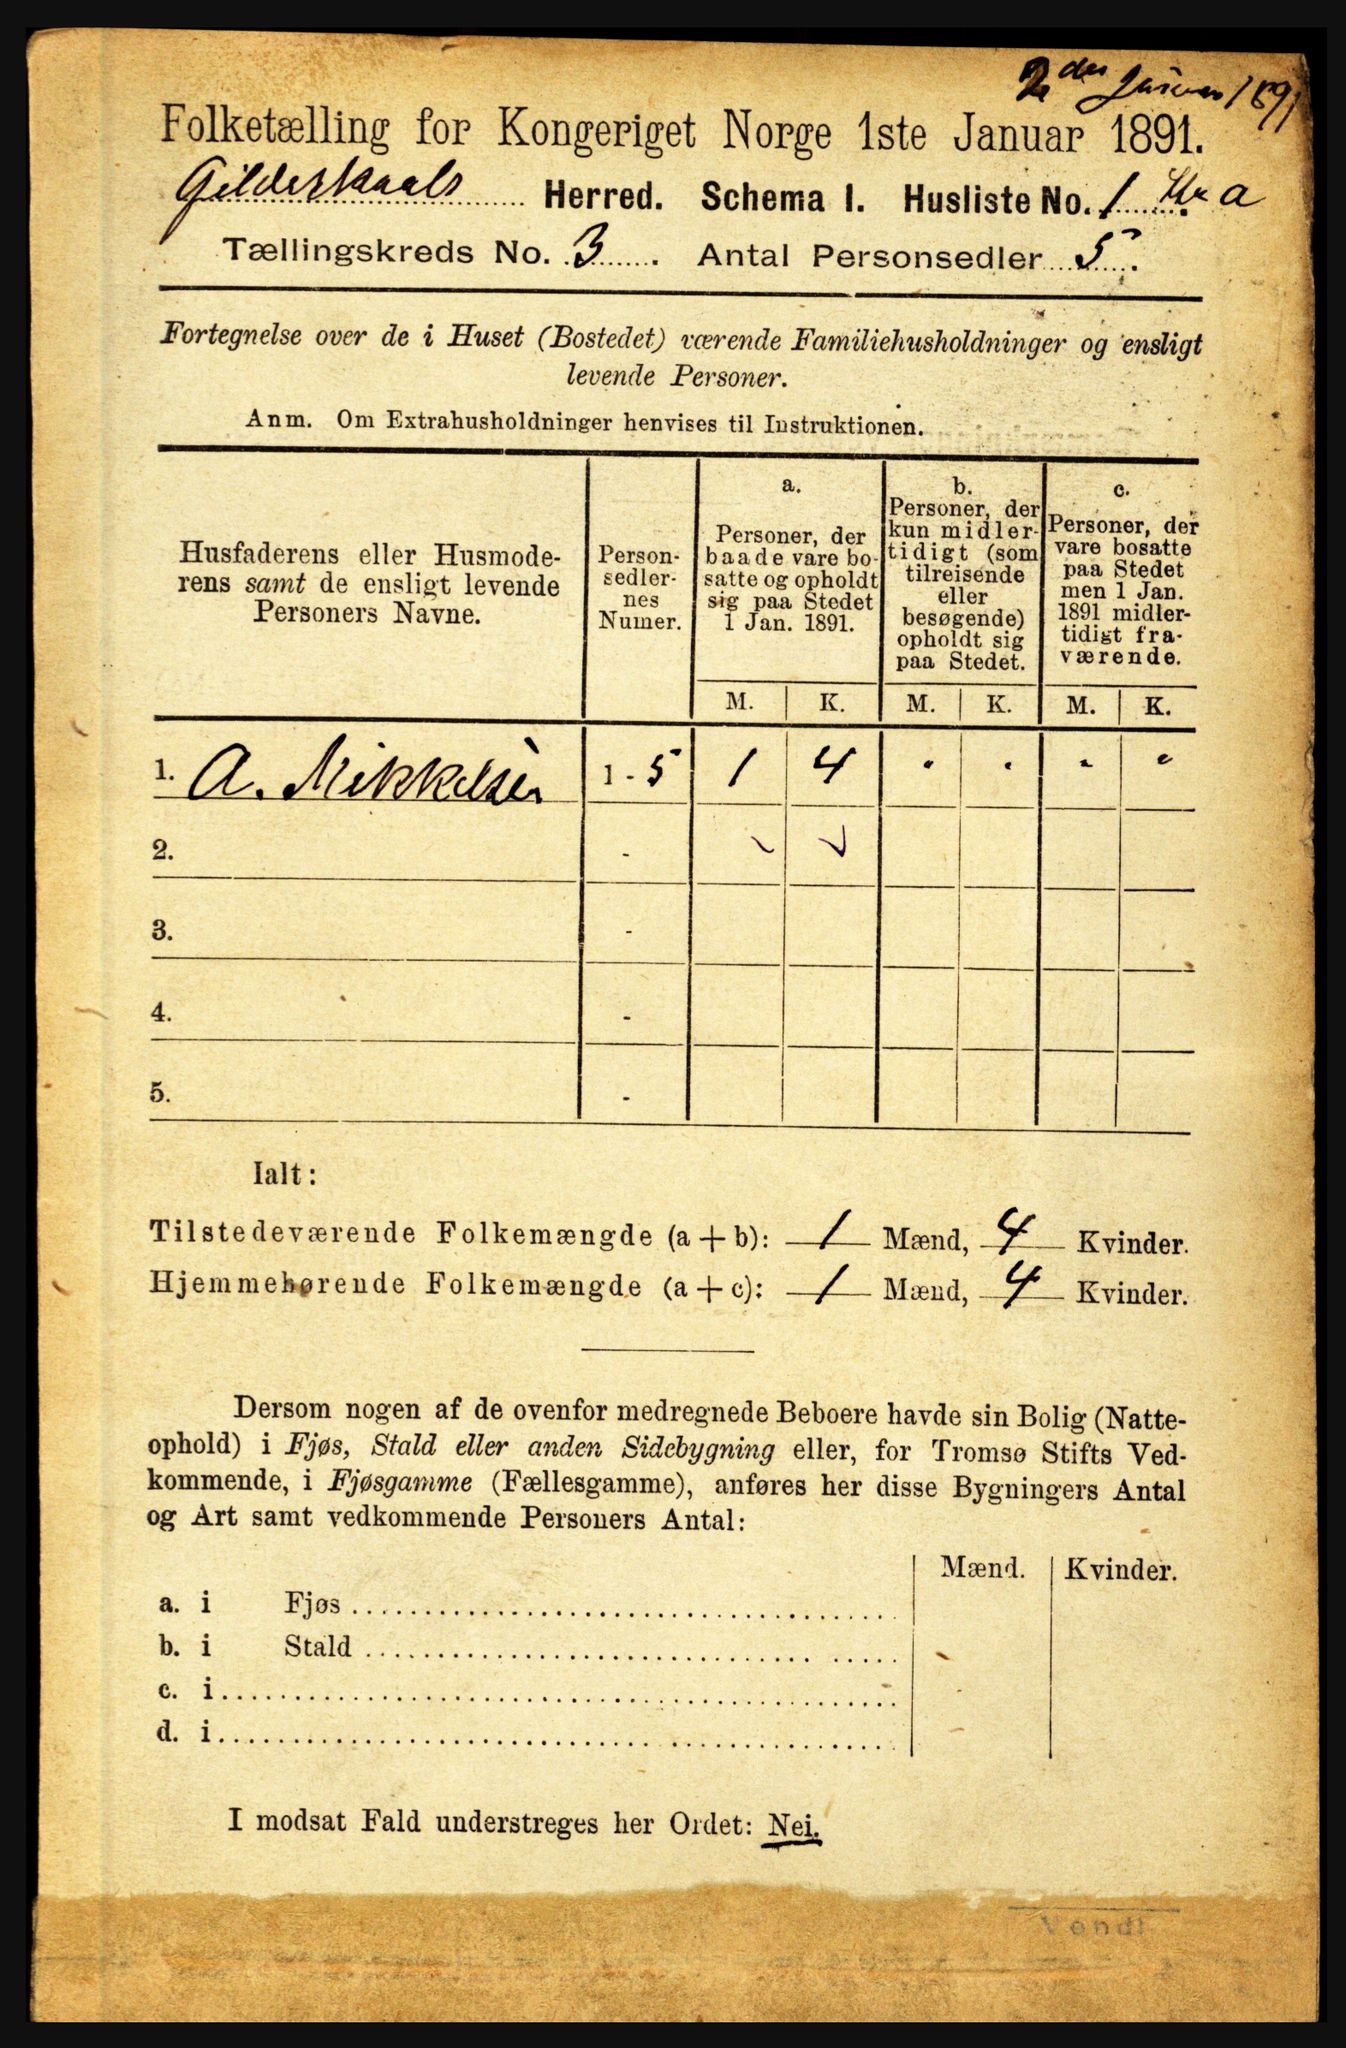 2den Januar 1891
Folketælling for Kongeriget Norge 1ste Januar 1891.
Gilderskaals Herred. Schema I. Husliste No. 1 a
Tællingskreds No. 3. Antal Personsedler 5.
Fortegnelse over de i Huset (Bostedet) værende Familiehusholdninger og ensligt
levende Personer.
Anm. Om Extrahusholdninger henvises til Instruktionen.
Husfaderens eller Husmode-
rens samt de ensligt levende
Personers Navne.
Person-
sedler-
nes
Numer.
a.
Personer, der
baade vare bo-
satte og opholdt
sig paa Stedet
1 Jan. 1891.
b.
Personer, der
kun midler-
tidigt (som
tilreisende
eller
besøgende)
opholdt sig
paa Stedet.
c.
Personer, der
vare bosatte
paa Stedet
men 1 Jan.
1891 midler-
tidigt fra-
værende.
M. K. M. K. M. K.
1. A. Mikkelsen 1 - 5 1 4 " " " "
2. -
3. -
4. -
5. -
Ialt:
Tilstedeværende Folkemængde (a + b): 1 Mænd, 4 Kvinder.
Hjemmehørende Folkemængde (a + c): 1 Mænd, 4 Kvinder.
Dersom nogen af de ovenfor medregnede Beboere havde sin Bolig (Natte-
ophold) i Fjøs, Stald eller anden Sidebygning eller, for Tromsø Stifts Ved-
kommende, i Fjøsgamme (Fællesgamme), anføres her disse Bygningers Antal
og Art samt vedkommende Personers Antal:
Mænd. Kvinder.
a. i Fjøs
b. i Stald
c. i
d. i
I modsat Fald understreges her Ordet: Nei.
Vend!